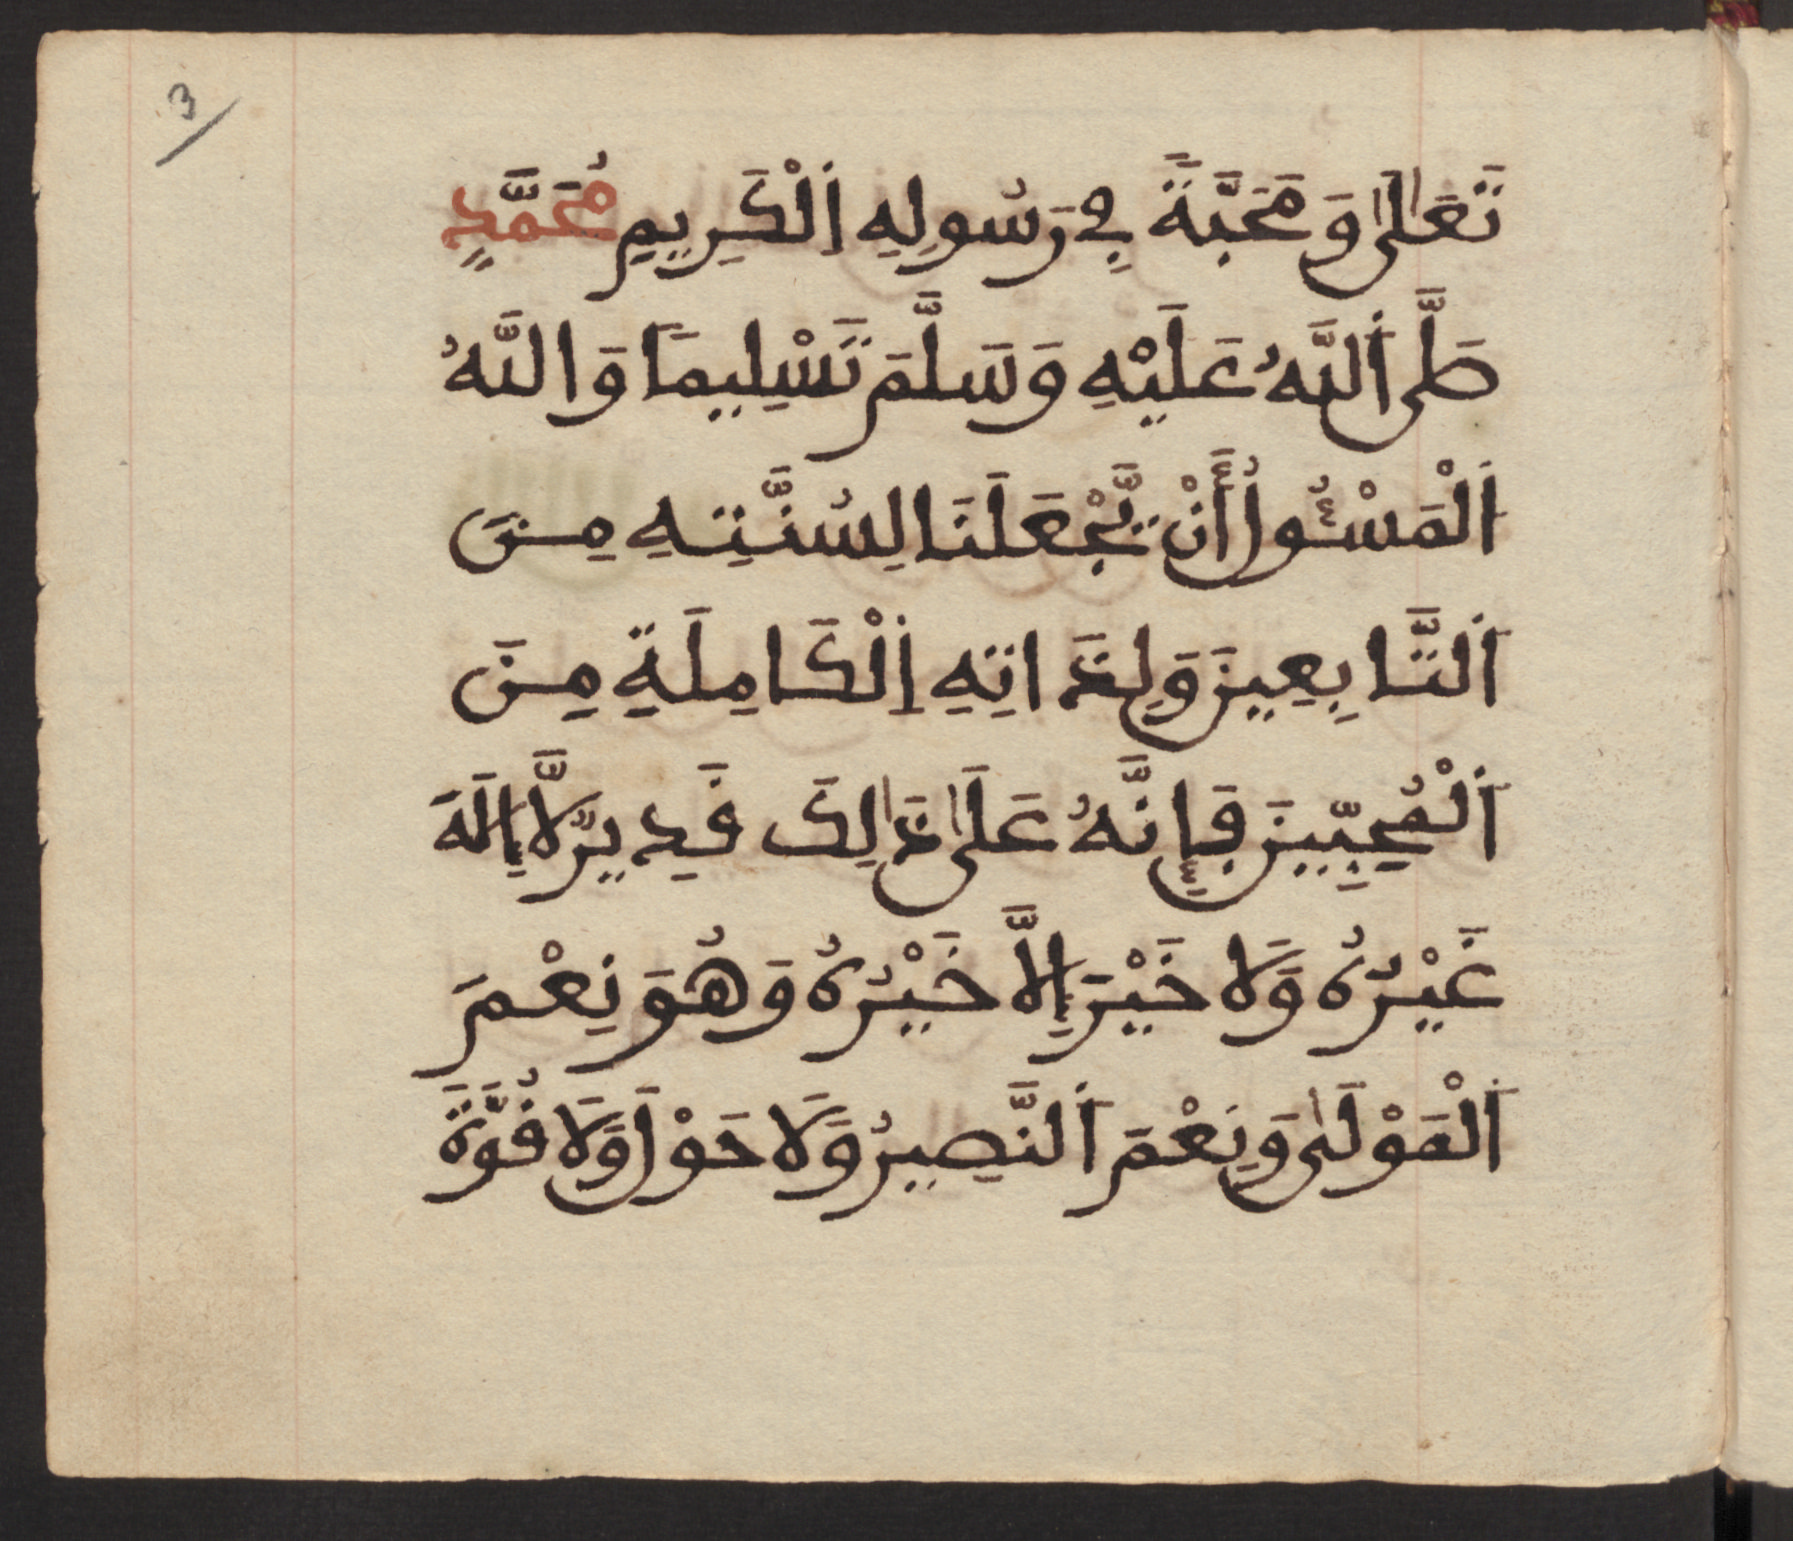 3
تَعَالَىٰ وَمَحَبَّةً فِي رَسُولِهِ اِلْكَرِيمِ مُحَمَّدٍ
صَلَّى اَللَّهُ عَلَيْهِ وَسَلَّمَ تَسْلِيمًا وَاللَّهُ
اَلْمَسْئُولُ أَنْ يَّجْعَلَنَا لِسُنَّتِهِ مِنَ
اَلتَّابِعِينَ وَلِذَاتِهِ اِلْكَامِلَةِ مِنَ
اَلْمُحِبِّينَ فَإِنَّهُ عَلَىٰ ذَٰلِكَ قَدِيرٌ لَّا إِلَهَ
غَيْرُهُ وَلَا خَيْرَ إِلَّا خَيْرُهُ وَهُوَ نِعْمَ
اَلْمَوْلَىٰ وَنِعْمَ اَلنَّصِيرُ وَلَا حَوْلَ وَلَا قُوَّةَ